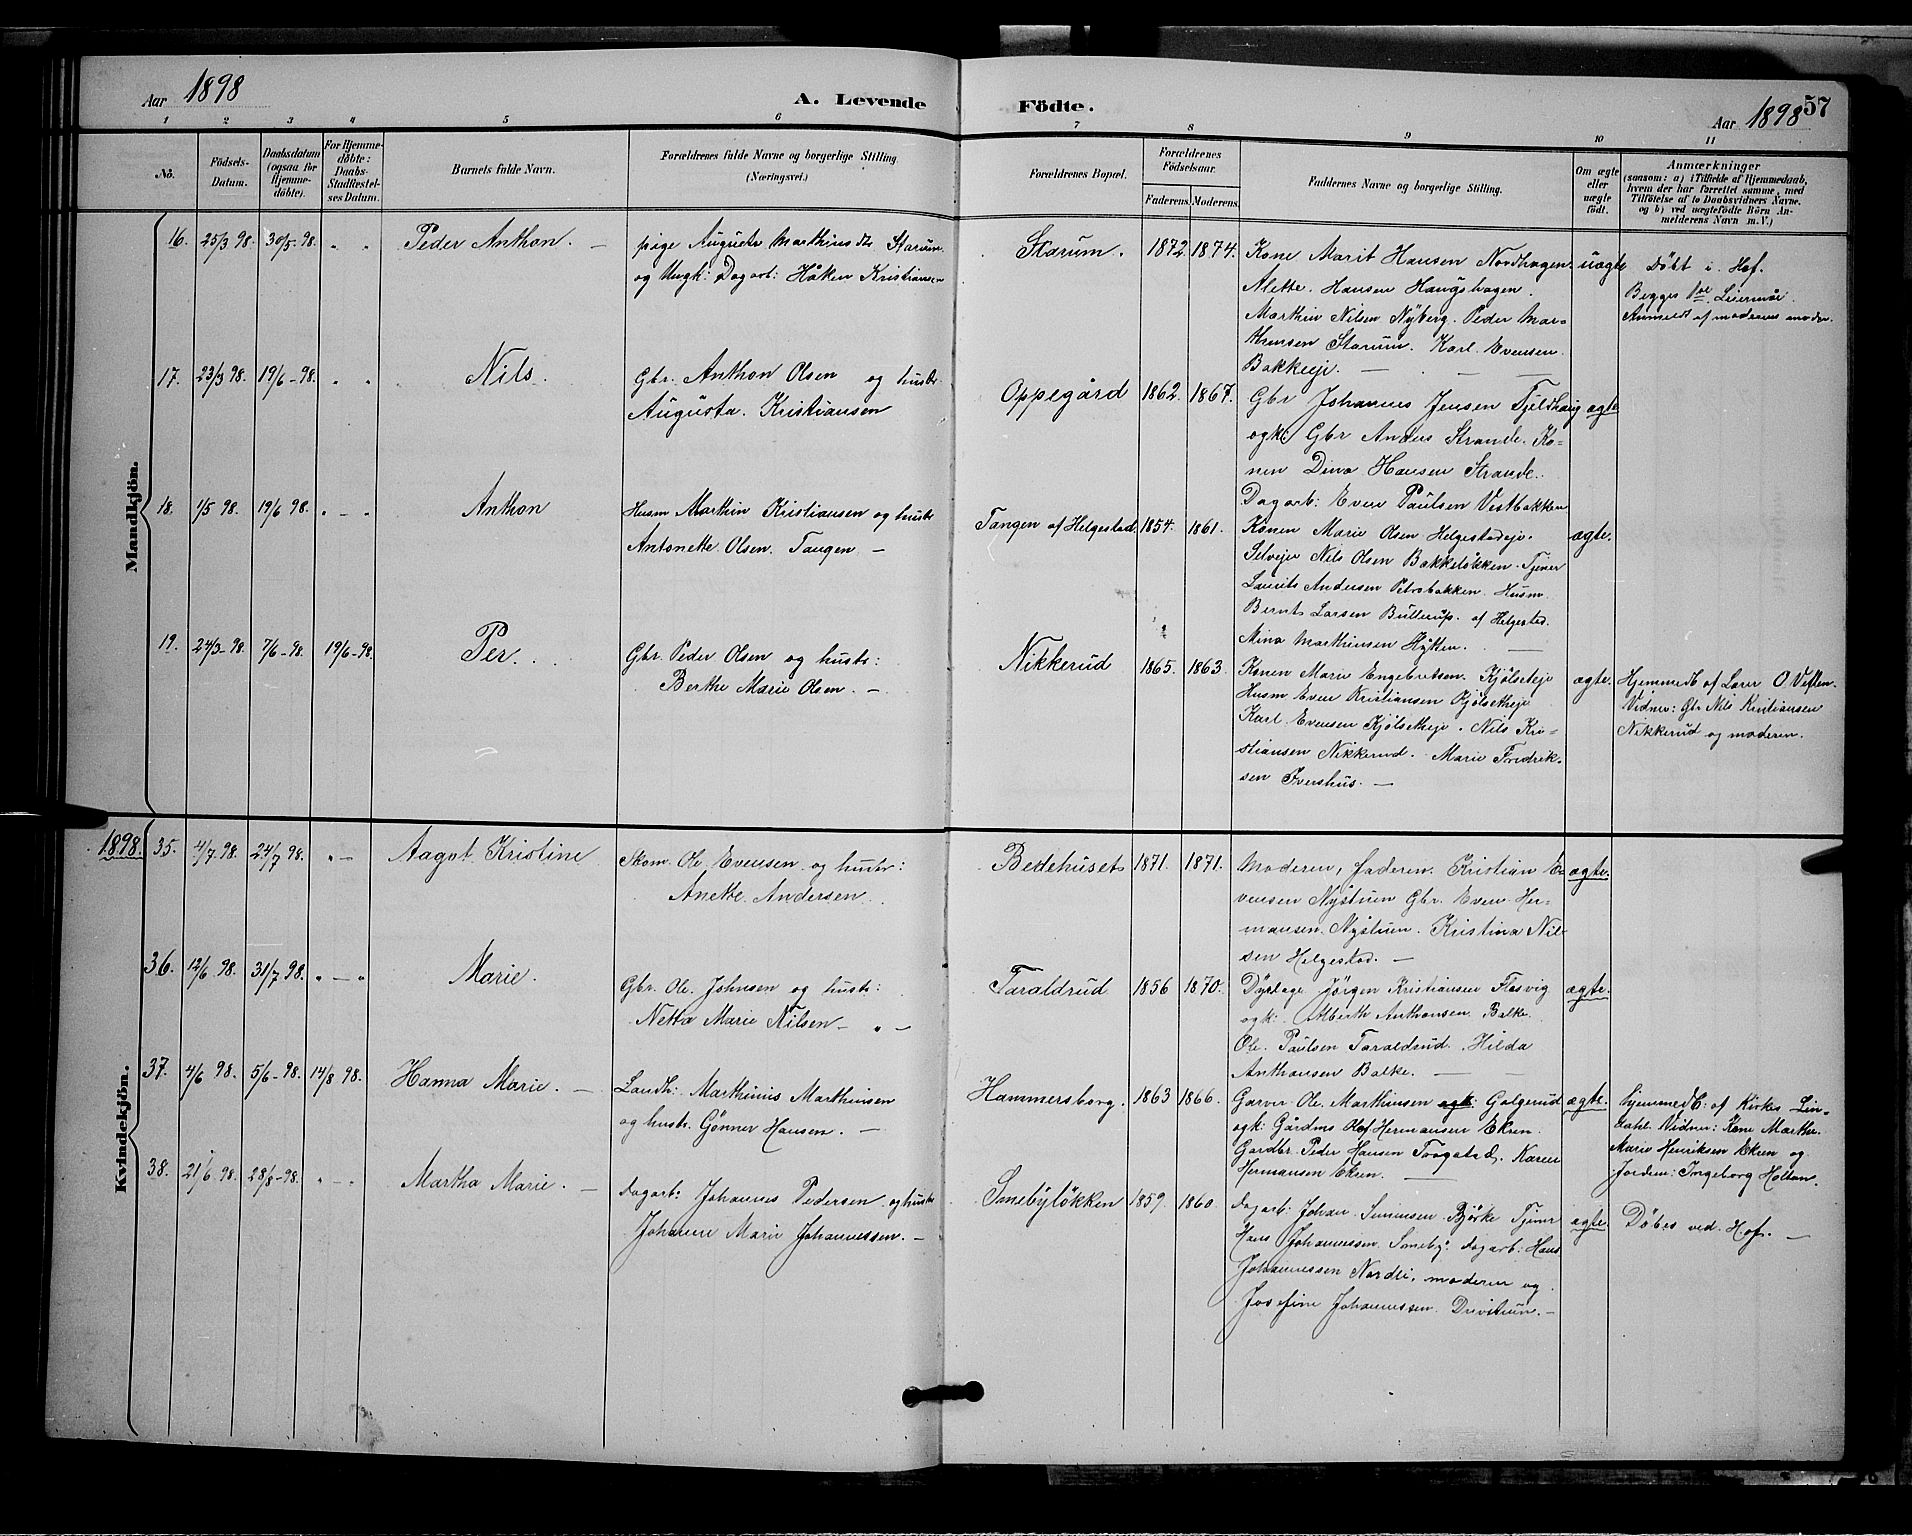 Aar 1898
A. Levende Födte.
Aar 1898
57
1 2 3 4 5 6 7 8 9 10 11
No.
Födsels-Datum.
Daabsdatum (ogsaa for Hjemme-döbte).
For Hjemme-döbte: Daabs-Stadfæstel-ses Datum.
Barnets fulde Navn.
Forældrenes fulde Navne og borgerlige Stilling. (Næringsvei.)
Forældrenes Bopæl.
Forældrenes Födselsaar.
Faderens. Moderens.
Faddernes Navne og borgerlige Stilling.
Om ægte eller uægte födt.
Anmærkninger
(saasom: a) i Tilfælde af Hjemmedaab,
hvem der har forrettet samme, med
Tilföielse af to Daabsvidners Navne.
og b) ved uægtefödte Börn An-
melderens Navn m. V.)
Mandkjön.
16. 25/3 98. 30/5-98. " " Peder Anthon. —
pige Augusta Marthinsdtr Starum
og Ungk: Dagarb: Håken Kristiansen
Starum. 1872. 1874.
Kone Marit Hansen Nordhagen.
Alette Hansen Haugshagen.
Marthin Nilsen Nyberg. Peder Mar-
thinsen Starum. Karl Evensen
Bakkeeje. — — —
uægte
Döbt i Hof.
Begges 1ste Leiermål.
Anmeldt af moderens moder.
17. 23/3 98. 19/6-98. " " Nils
Gbr. Anthon Olsen og hustr
Augusta Kristiansen
Oppegård 1862. 1867.
Gbr Johannes Jensen Fjeldhaug
ogk: Gbr Anders Strande. Ko-
nen Dina Hansen Strande.
Dagarb: Even Paulsen Vestbakken
ægte
18. 1/5 98. 19/6 98. " — " Anthon
Husm Marthin Kristiansen og hustr
Antonette Olsen. Tangen —
Tangen af Helgestad. 1854. 1861.
Konen Marie Olsen Helgestadeje.
Selvejer Nils Olsen Bakkelökken. Tjener
Laurits Andersen Petrobakken. Husm
Bernt Larsen Bullerup. af Helgestad.
Mina Marthinsen Hytten. —
ægte.
19. 24/3-98. 7/6-98. 19/6-98. Per.
Gbr. Peder Olsen og hustr:
Berthe Marie Olsen. —
Nikkerud 1865. 1863.
Konen Marie Engebretsen. Kjölseteje
Husm Even Kristiansen Kjölsetheje
Karl Evensen Kjölsetheje. Nils Kri-
stiansen Nikkerud. Marie Fredrik-
sen Ivershus. —
ægte.
Hjemmedt af Lærer O. Veflen.
Vidner: Gbr Nils Kristiansen
Nikkerud og moderen.
1898.
Kvindekjön.
35. 4/7 98. 24/7 98. " — Aagot Kristine
Skom. Ole Evensen og hustr:
Anette Andersen.
Bedehuset 1871. 1871.
Moderen, faderen. Kristian E-
vensen Nystuen Gbr. Even Her-
mansen. Nystuen. Kristina Nil-
sen Helgestad. —
ægte.
36. 12/6 98. 31/7 98. " — " Marie.
Gbr. Ole Johnsen og hustr:
Netta Marie Nilsen — " —
Taraldrud 1856 1870.
Dyrlæge Jörgen Kristiansen Flesvig
ogk: Alberth Anthonsen Balke.
Ole Paulsen Taraldsud. Hilda
Anthonsen Balke. — —
ægte.
37. 4/6 98. 5/6-98. 14/8 98. Hanna Marie. —
Landh: Marthinus Marthinsen
og hustr. Gönner Hansen. —
Hammersborg. 1863 1866.
Garver Ole Marthinsen ogk: Galgerud
ogk: Gårdms Olof Hermansen Eken.
Gårdbr. Peder Hansen Trogstad. Karen
Hermansen Eken. —
ægte.
hjemmedt: af Kirkes. Lin-
dahl Vidner: Kone Marthe
Marie Henriksen Eken og
Jordm: Ingeborg Holtan.
38. 21/6 98. 28/8-98. " — " Martha Marie. —
Dagarb: Johannes Pedersen og hustr
Johanne Marie Johannessen. —
Smebylökken 1859. 1860.
Dagarb: Johan Simensen Björke Tjener
Hans Johannessen Smeby. Dagarb: Hans
Johannessen Nordli, moderen og
Josefine Johannessen Drivstuen. —
ægte
Döbes ved Hof. —